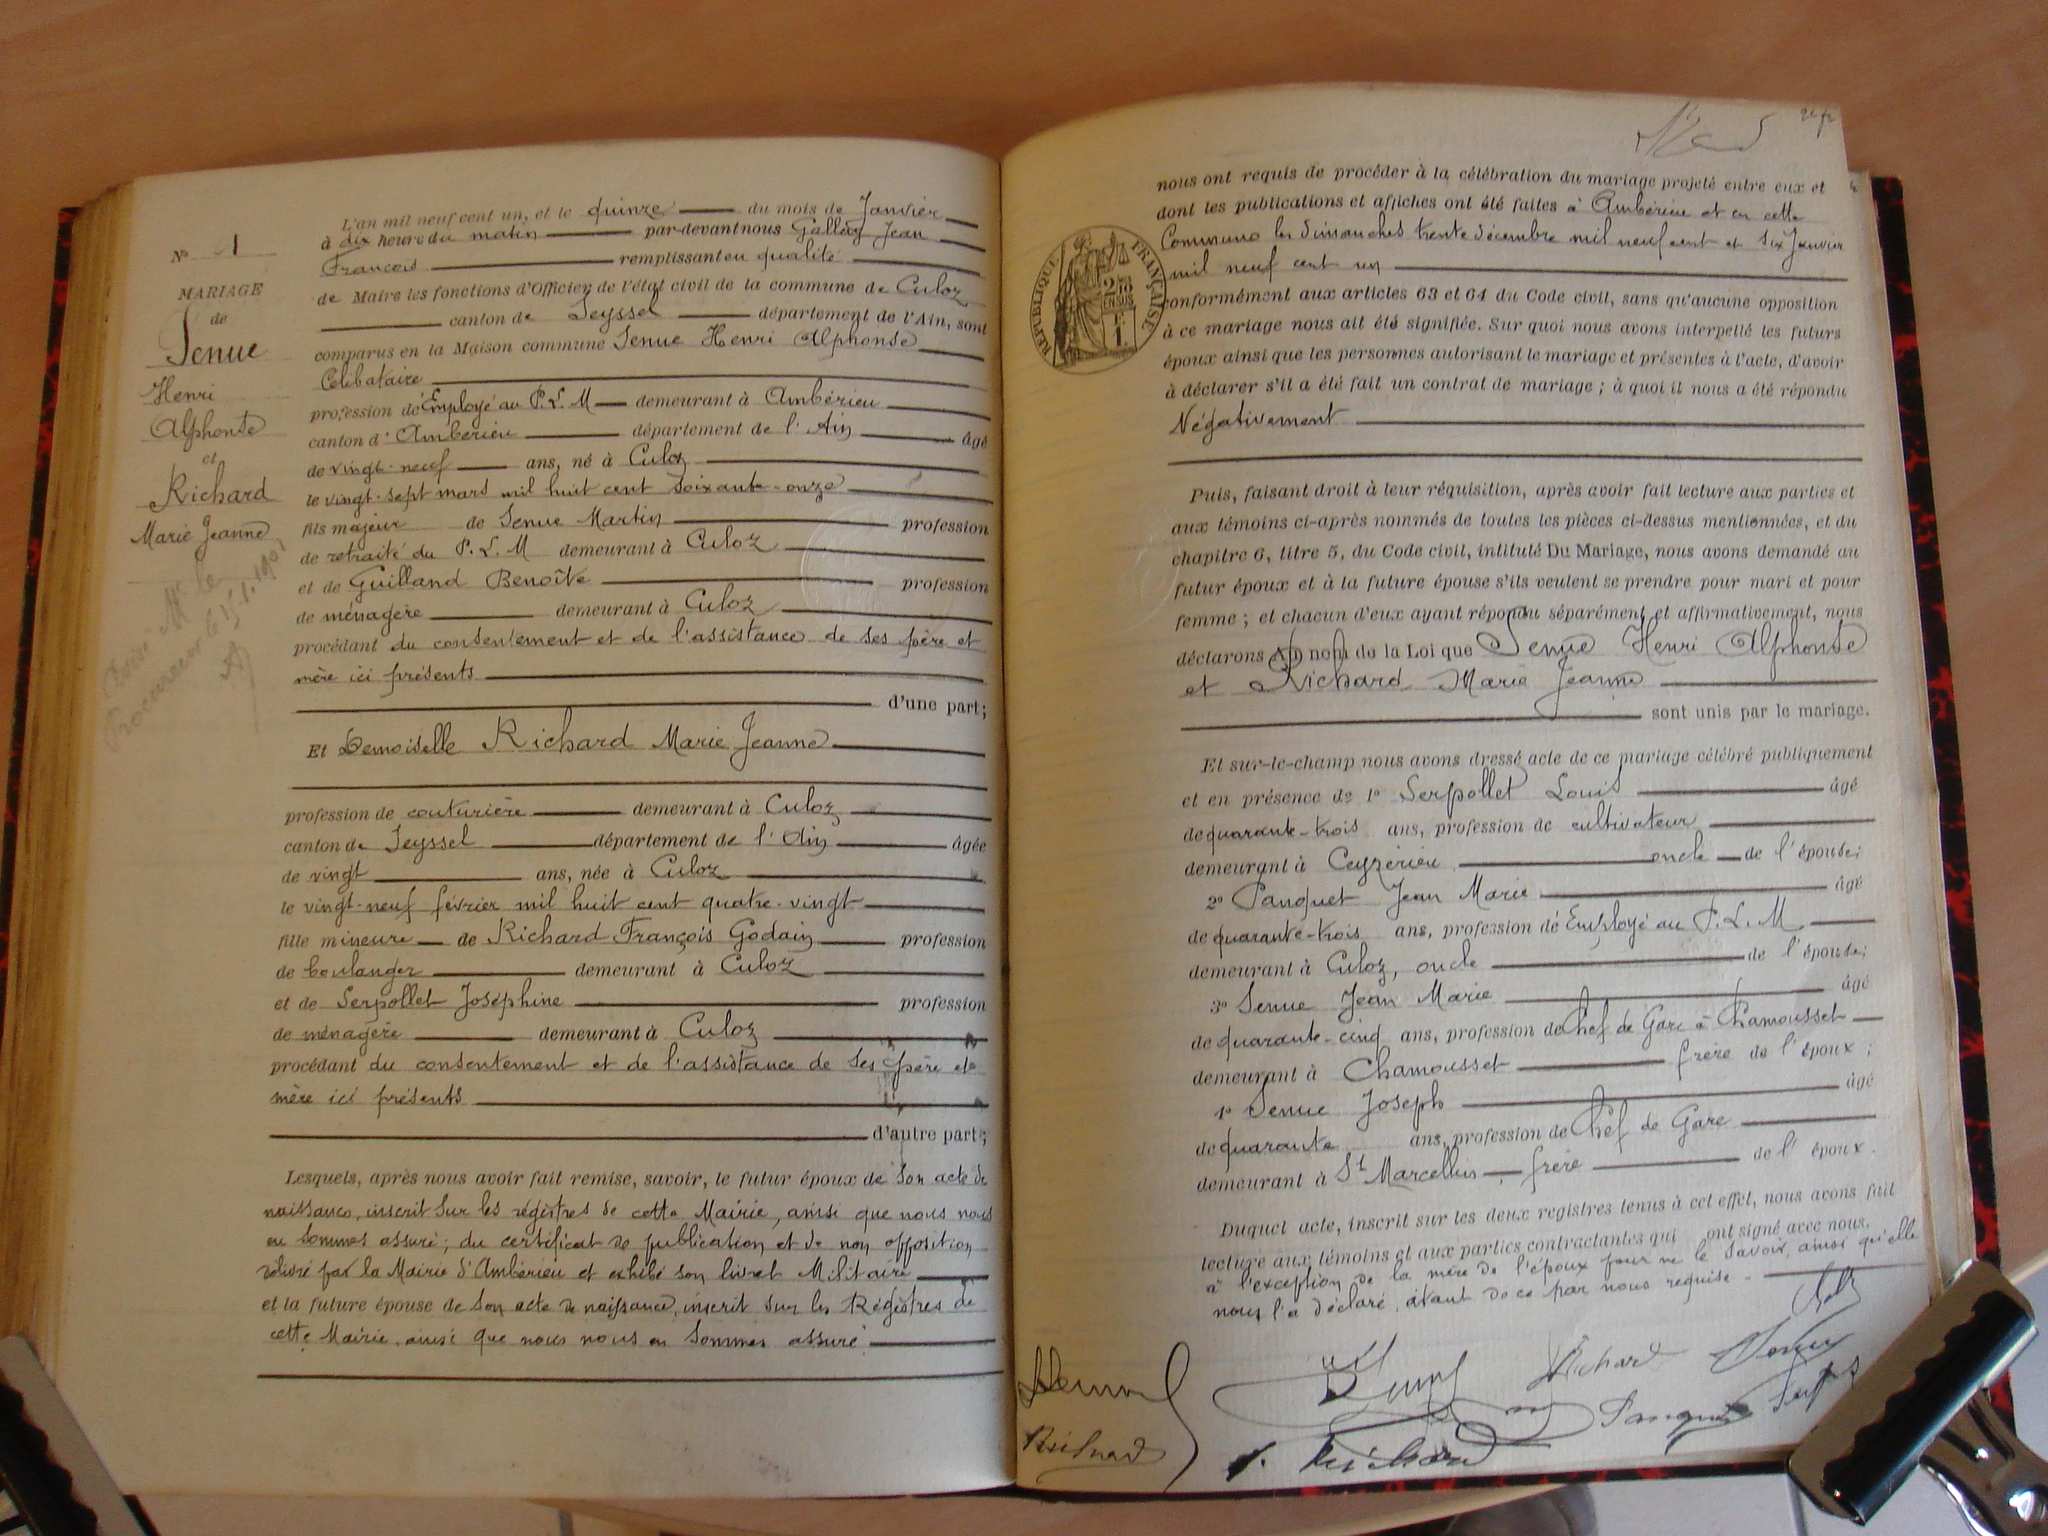 N° 1
MARIAGE
de
Senue
Henri
Alphonse
et
Richard
Marie Jeanne
L'an mil neuf cent un, et le quinze du mois de Janvier
à dix heure du matin par-devant nous Gallay Jean
François remplissant en qualité
de Maire les fonctions d'Officier de l'état civil de la commune de Culoz
canton de Seyssel département de l'Ain, sont
comparus en la Maison commune Senue Henri Alphonse
Célibataire
profession d'Employé au P.L.M demeurant à Ambérieu
canton d'Ambérieu département de l'Ain âgé
de vingt-neuf ans, né à Culoz
le vingt-sept mars mil huit cent soixante-onze
fils majeur de Senue Martin profession
de retraité du P.L.M demeurant à Culoz
et de Guilland Benoîte profession
de ménagère demeurant à Culoz
procédant du consentement et de l'assistance de ses père et
mère ici présents
d'une part;
Et Demoiselle Richard Marie Jeanne
profession de couturière demeurant à Culoz
canton de Seyssel département de l'Ain âgée
de vingt ans, née à Culoz
le vingt-neuf février mil huit cent quatre-vingt
fille mineure de Richard François Godain profession
de boulanger demeurant à Culoz
et de Serpollet Joséphine profession
de ménagère demeurant à Culoz
procédant du consentement et de l'assistance de ses père et
mère ici présents
d'autre part;
Lesquels, après nous avoir fait remise, savoir, le futur époux de son acte de
naissance, inscrit sur les régistres de cette Mairie, ainsi que nous nous
en sommes assuré; du certificat de publication et de non opposition
délivré par la Mairie d'Ambérieu et exhibé son livret Militaire
et la future épouse de son acte de naissance, inscrit sur les Régistres de
cette Mairie, ainsi que nous nous en sommes assuré
nous ont requis de procéder à la célébration du mariage projeté entre eux et
dont les publications et affiches ont été faites à Ambérieu et en cette
Commune les dimanches trente décembre mil neuf cent et six Janvier
mil neuf cent un
RÉPUBLIQUE FRANÇAISE
conformément aux articles 63 et 64 du Code civil, sans qu'aucune opposition
à ce mariage nous ait été signifiée. Sur quoi nous avons interpellé les futurs
époux ainsi que les personnes autorisant le mariage et présentes à l'acte, d'avoir
à déclarer s'il a été fait un contrat de mariage; à quoi il nous a été répondu
Négativement
Puis, faisant droit à leur réquisition, après avoir fait lecture aux parties et
aux témoins ci-après nommés de toutes les pièces ci-dessus mentionnées, et du
chapitre 6, titre 5, du Code civil, intitulé Du Mariage, nous avons demandé au
futur époux et à la future épouse s'ils veulent se prendre pour mari et pour
femme; et chacun d'eux ayant répondu séparément et affirmativement, nous
déclarons Au nom de la Loi que Senue Henri Alphonse
et Richard Marie Jeanne
sont unis par le mariage.
Et sur-le-champ nous avons dressé acte de ce mariage célébré publiquement
et en présence de 1° Serpollet Louis âgé
de quarante-trois ans, profession de cultivateur
demeurant à Ceyzérieu oncle de l'épouse;
2° Panquet Jean Marie âgé
de quarante-trois ans, profession d'Employé au P.L.M
demeurant à Culoz, oncle de l'épouse;
3° Senue Jean Marie âgé
de quarante-cinq ans, profession de Chef de Gare à Chamousset
demeurant à Chamousset frère de l'époux;
4° Senue Joseph âgé
de quarante ans, profession de Chef de Gare
demeurant à St Marcellin, frère de l'époux.
Duquel acte, inscrit sur les deux registres tenus à cet effet, nous avons fait
lecture aux témoins et aux parties contractantes qui ont signé avec nous.
à l'exception de la mère de l'époux pour ne le savoir, ainsi qu'elle
nous l'a déclaré, étant de ce par nous requise.
Richard Senue
Richard
Richard